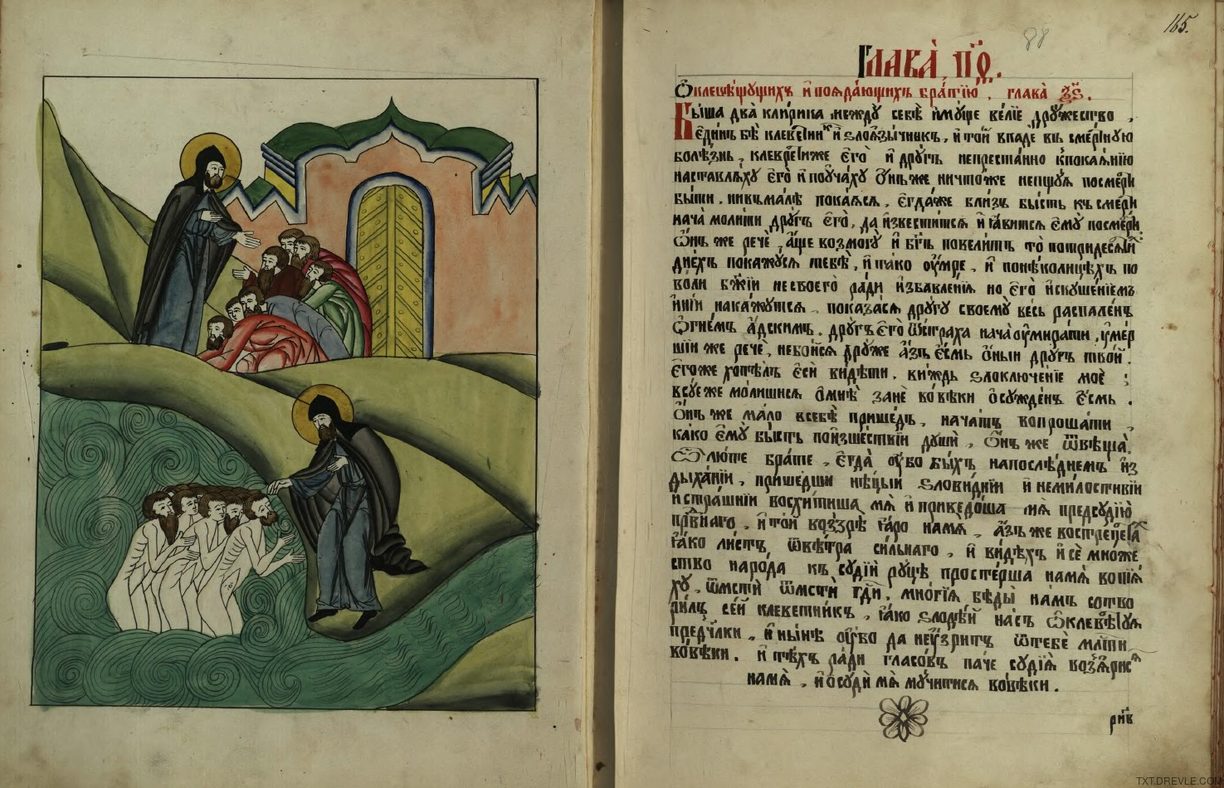 165.
88
Глава̀ п҃ѳ.
Ѡклевѣщущихъ и҆поѧдающихъ бра́тїю, глава̀ з҃ѕ.
Бы́ша два̀ кли́рика, между себѐ и҆му́ще ве́лїе дру́жество,
є҆ди́нъ бѣ̀ клеветни́къ и҆ ѕлоѧзы́чникъ, и҆ то́й впаде въ сме́ртную
болѣ́знь, клевре́ти же є҆гѡ̀ и҆ дру́гъ непреста́нно к̾покаѧ́нїю
наставлѧ́ху є҆го̀ и҆ поуча́ху ѻ҆́нъ же ничто́же непщу́ѧ посме́рти
бы́ти. нивъма́лѣ покаѧ́сѧ, є҆гда́же бли́зъ бы́сть къ сме́рти
нача̀ моли́ти дру́гъ є҆го̀, да и҆звести́тсѧ и҆ ꙗ҆ви́тсѧ є҆мꙋ̀ посме́рти
ѻ҆́нъ же речѐ, а҆́ще возмогу̀ и҆ бг҃ъ повели́тъ то по тридесѧти
дне́хъ покажу́сѧ тебѣ̀, и҆ та́ко ѹ҆́мре, и҆ понѣ́колицѣхъ по
воли бж҃їи не своего̀ ра́ди и҆збавле́нїѧ но є҆го̀ и҆скуше́нїемъ
и҆ні́и нака́жутсѧ, показа́сѧ дру́гу своему̀ ве́сь распале́нъ
ѻ҆гне́мъ а҆́дскимъ. дру́гъ є҆гѡ̀ ѿстра́ха нача̀ ѹ҆мира́ти, ѹ҆ме́р
шїи же речѐ, небо́йсѧ дру́же а҆́зъ є҆́смь ѻ҆́ныи дру́гъ тво́й.
є҆го́же хотѣ́лъ є҆сѝ ви́дѣти. ви́ждь ѕлоключе́нїе моѐ;
всу́е же мо́лишисѧ ѡ҆мнѣ̀ занѐ во вѣ́ки ѡ҆сужде́нъ є҆́смь.
ѻ҆́нъ же ма́ло в себѐ прише́дъ, нача́тъ вопроша́ти,
ка́ко є҆му̀ бы́сть по и҆зше́ствїи души̾, ѻ҆́нъ же ѿвѣща̀.
ѽлю́те бра́те, є҆гда̀ ѹ҆́бо бы́хъ напослѣ́днемъ и҆з
дыха́нїи, прише́дши нѣ́цыи ѕловидні́и и҆ неми́лостивїи
и҆ стра́шнїи восхи́тиша мѧ̀ и҆ приведо́ша мѧ̀ предсудїю̀
пра́внаго, и҆ то́й воззрѣ̀ ꙗ҆́ро намѧ̀, а҆́зъ же вострепета́хъ
ꙗ҆́ко ли́стъ, ѿвѣ́тра си́льнаго, и҆ ви́дѣхъ и҆ сѐ мно́же
ство наро́да къ судїи́ ру́цѣ просте́рша намѧ̀ вопїѧ́
ху, ѿмстѝ ѿмстѝ гд҇и, мно́гїѧ бѣ́ды на́мъ сотво
ри́лъ се́й клевети́къ, ꙗ҆́ко ѕлодѣ́й на́съ ѡ҆клеве́та́ѧ
предчл҃вки, и҆ ны́нѣ ѹ҆́бо да неу҆́зритъ ѿтебѐ млⷭ҇ти
во вѣ́ки. и҆ тѣ́хъ ра́ди гласо́въ па́че судїѧ̀ возѧ҆ри́сѧ
намѧ̀, и҆ ѡ҆судѝ мѧ̀ му́читисѧ во вѣ́ки.
рп҃в
TXT.DREVLE.COM